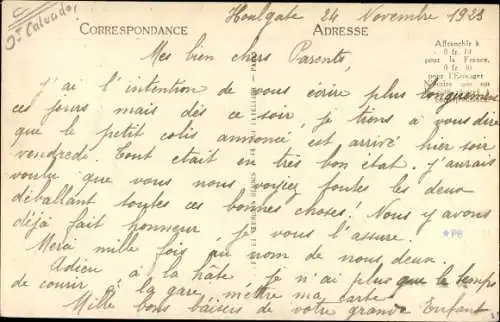 Dt Calvados
Houlgate 24 Novembre 1923
CORRESPONDANCE ADRESSE
Affranchir à
0 fr.
pour la France,
0 fr.
pour l'Etranger
Mes bien chers Parents,
J'ai l'intention de vous écrire plus longuement
ces jours mais dès ce soir, je tiens à vous dire
que le petit colis annoncé est arrivé hier soir
vendredi. Tout était en très bon état. J'aurais
voulu que vous nous voyiez toutes les deux
déballant toutes ces bonnes choses! Nous y avons
déjà fait honneur, je vous l'assure.
*PB
Merci mille fois au nom de nous deux.
Adieu à la hâte je n'ai plus que le temps
de courir à la gare, mettre ma carte!
Mille bons baisers de votre grande Enfant